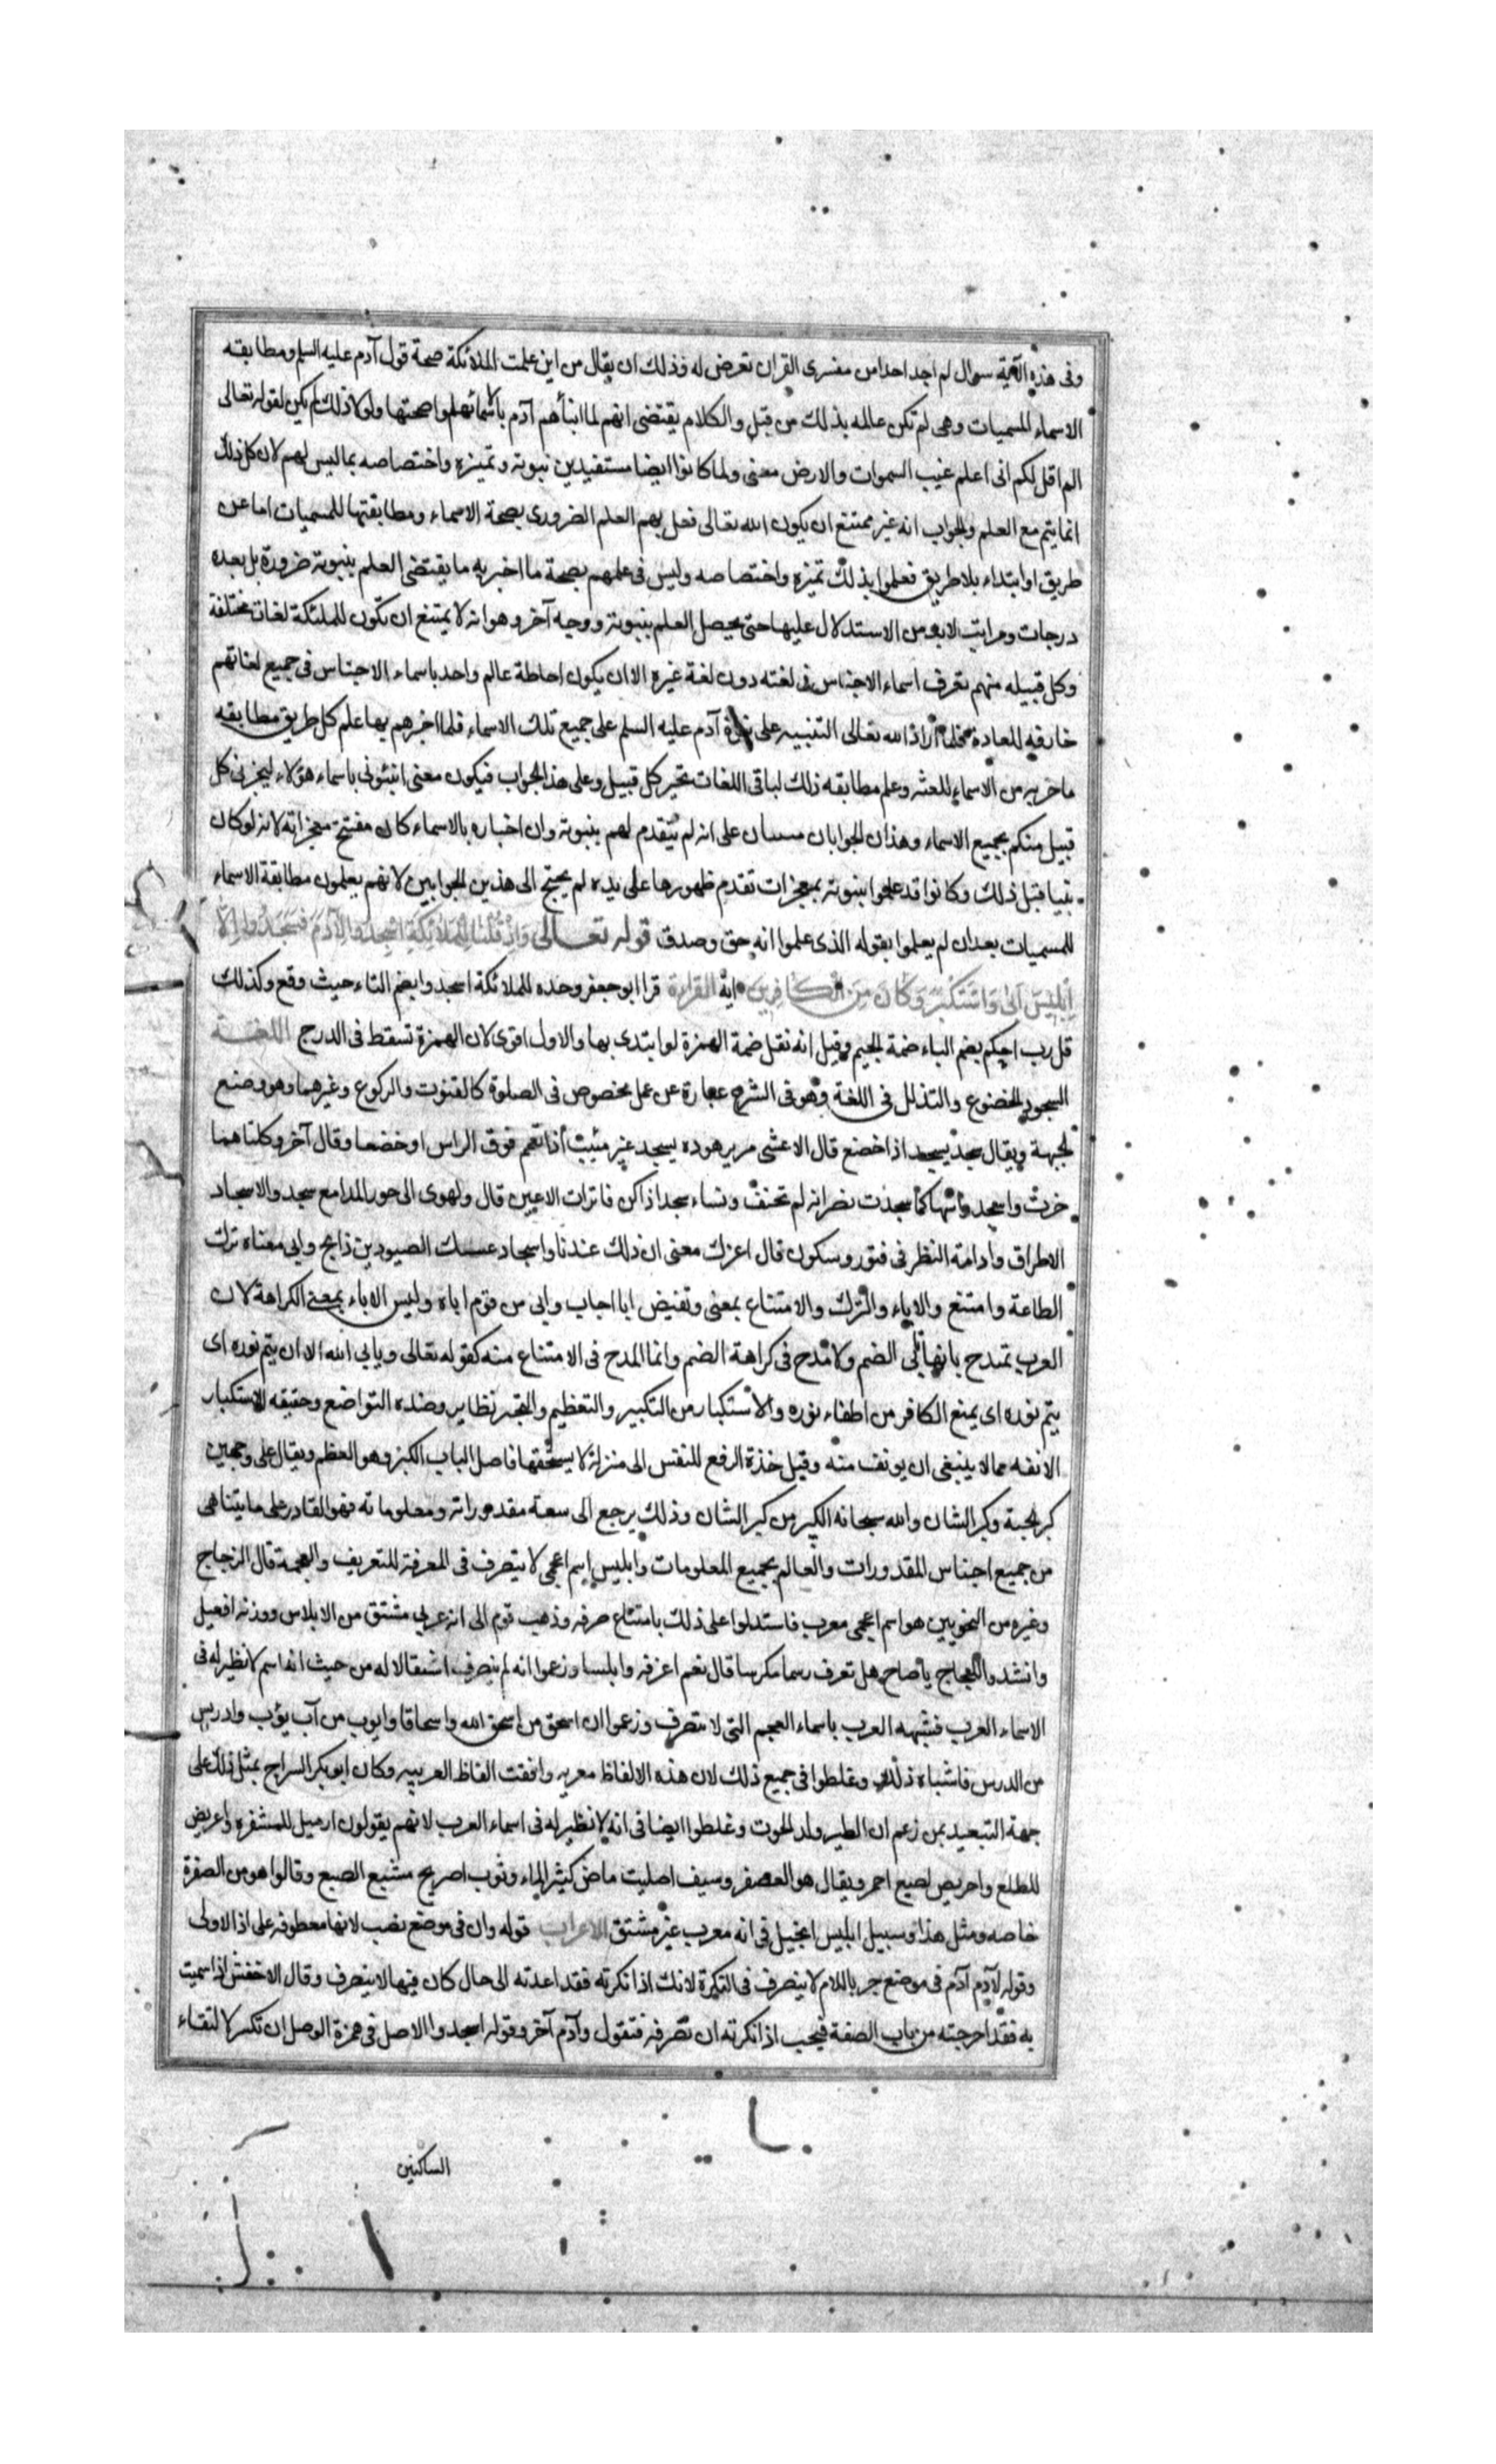 وفى هذه الآية سوال لم اجد احدا من مفسرى القران تعرض له وذلك ان يقال من اين علمت الملائكة صحة قول آدم عليه السلم ومطابقته
الاسماء المسميات وهى لم تكن عالمه بذلك من قبل والكلام يقتضى انهم لما انبأهم آدم باسمائهم علموا صحتها ولولا ذلك لم يكن لقوله تعالى
الم اقل لكم انى اعلم غيب السموات والارض معنى ولما كانوا ايضا مستفيدين نبوته وتميزه واختصاصه بما ليس لهم لان كل ذلك
انما يتم مع العلم والجواب انه غير ممتنع ان يكون الله تعالى فعل بهم العلم الضرورى بصحة الاسماء ومطابقتها للمسميات اما عن
طريق او ابتداء بلا طريق فعلموا بذلك تميزه واختصاصه وليس فى علمهم بصحة ما اخبر به ما يقتضى العلم بنبوته ضرورة بل بعده
درجات ومراتب لابد من الاستدلال عليها حتى يحصل العلم بنبوته ووجه آخر وهو انه لا يمتنع ان تكون للملئكة لغات مختلفة
وكل قبيله منهم تعرف اسماء الاجناس فى لغته دون لغة غيره الا ان يكون احاطة عالم واحد باسماء الاجناس فى جميع لغاتهم
خارقه للعادة فلما أراد الله تعالى التنبيه على نبوة آدم عليه السلم على جميع تلك الاسماء فلما اخبرهم بها علم كل طريق مطابقه
ما خبر به من الاسماء للغته وعلم مطابقه ذلك لباقى اللغات بخبر كل قبيل وعلى هذا الجواب فيكون معنى انبئونى باسماء هؤلاء ليخبرنى كل
قبيل منكم بجميع الاسماء وهذان الجوابان على انه لم يتقدم لهم بنبوته وان اخباره بالاسماء كان مفتتح معجزاته لانه لو كان
نبيا قبل ذلك وكانوا قد علموا بنبوته بمعجزات تقدم ظهورها على يده لم يحتج الى هذين الجوابين لانهم يعلمون مطابقة الاسماء
للمسميات بعد ان لم يعلموا بقوله الذى علموا انه حق وصدق قوله تعالى وَإِذْ قُلْنَا لِلْمَلَائِكَةِ اسْجُدُوا لِآدَمَ فَسَجَدُوا إِلَّا
إِبْلِيسَ أَبَى وَاسْتَكْبَرَ وَكَانَ مِنَ الْكَافِرِينَ اية القراءة قرا ابو جعفر وحده للملائكة اسجدوا بضم التاء حيث وقع وكذلك
قل رب احكم بضم الباء ضمة الجيم وقيل انه نقل ضمة الهمزة لو ابتدى بها والاول اقوى لان الهمزة تسقط فى الدرج اللغة
السجود الخضوع والتذلل فى اللغة وهو فى الشرع عبارة عن عمل مخصوص فى الصلوة كالقنوت والركوع وغيرهما وهو وضع
الجبهة ويقال سجد يسجد اذا خضع قال الاعشى من ير هوذه يسجد غير متئب اذا تعم فوق الراس او خضعا وقال آخر وكلتاهما
خرت واسجد رأسها كما سجدت نصرانه لم تحنف ونساء سجد اذا كن فاترات الاعين قال ولهوى الى حور المدامع سجد والاسجاد
الاطراق وادامة النظر فى فتور وسكون قال اعزك معنى ان ذلك عندنا واسجاد الصيودين ذابح وابى معناه ترك
الطاعة وامتنع والاباء والترك والامتناع بمعنى ونقيض ابا اجاب وابى من قوم اباة وليس الاباء بمعنى الكراهة لان
العرب تمتدح بانها تأبى الضم ولا مدح فى كراهة الضم وانما المدح فى الامتناع منه كقوله تعالى ويابى الله الا ان يتم نوره اى
يتم نوره اى يمنع الكافر من اطفاء نوره والاستكبار من التكبير والتعظيم والتجبر نظاير وضده التواضع وحقيقه الاستكبار
الانفه مما لا ينبغى ان يونف منه وقيل حده الرفع للنفس الى منزلة لا يستحقها فاصل الباب الكبر وهو العظم ويقال على وجهين
كبر الجثة وكبر الشان والله سبحانه الكبير من كبر الشان وذلك يرجع الى سعة مقدوراته ومعلوماته فهو القادر على ما يتناهى
من جميع اجناس المقدورات والعالم بجميع المعلومات وابليس اسم اعجمى لا يتصرف فى المعرفة للتعريف والعجمة قال الزجاج
وغيره من النحويين هو اسم اعجمى معرب فاستدلوا على ذلك بامتناع صرفه وذهب قوم الى انه عربى مشتق من الابلاس ووزنه افعيل
وانشدوا للعجاج يا صاح هل تعرف رسما مكرسا قال نعم اعرفه وابلسا وزعموا انه لم ينصرف استثقالا له من حيث انه اسم لا نظير له فى
الاسماء العرب فشبهه العرب باسماء العجم التى لا تنصرف وزعموا ان اسحق من اسحق الله واسحاقا وايوب من آب يؤب وادريس
من الدرس فاشباه ذلك وغلطوا فى جميع ذلك لان هذه الالفاظ معربه وافقت الفاظ العربيه وكان ابو بكر السراج يمثل ذلك على
جهة التبعيد بمن زعم ان الطير ولد الحوت وغلطوا ايضا فى انه لا نظير له فى اسماء العرب لانهم يقولون ازميل للشفره واغريض
للطلع واحريض لصبغ احمر ويقال هو العصفر وسيف اصليت ماض كثير الماء وثوب اضريج مشبع الصبغ وقالوا هو من الصفرة
خاصه ومثل هذا وسبيل ابليس انجيل فى انه معرب غير مشتق الاعراب قوله وان فى موضع نصب لانها معطوفه على اذ الاولى
وقوله لآدم آدم فى موضع جر باللام لا ينصرف فى النكرة لانك اذا نكرته فقد اعدته الى حال كان فيها لا ينصرف وقال الاخفش اذا سميت
به فقد اخرجته من باب الصفة فيجب اذا نكرته ان تصرفه فتقول وآدم آخر وقوله اسجدوا الاصل فى همزة الوصل ان تكسر لالتقاء
الساكنين